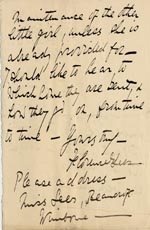 maintenance of the other
little girl, unless she is
already provided for –
I should like to hear, to
which home they are sent, &
how they get on, from time
to time – Yours truly –
Florence Lees
Please address –
Miss Lees,
Wimborne –